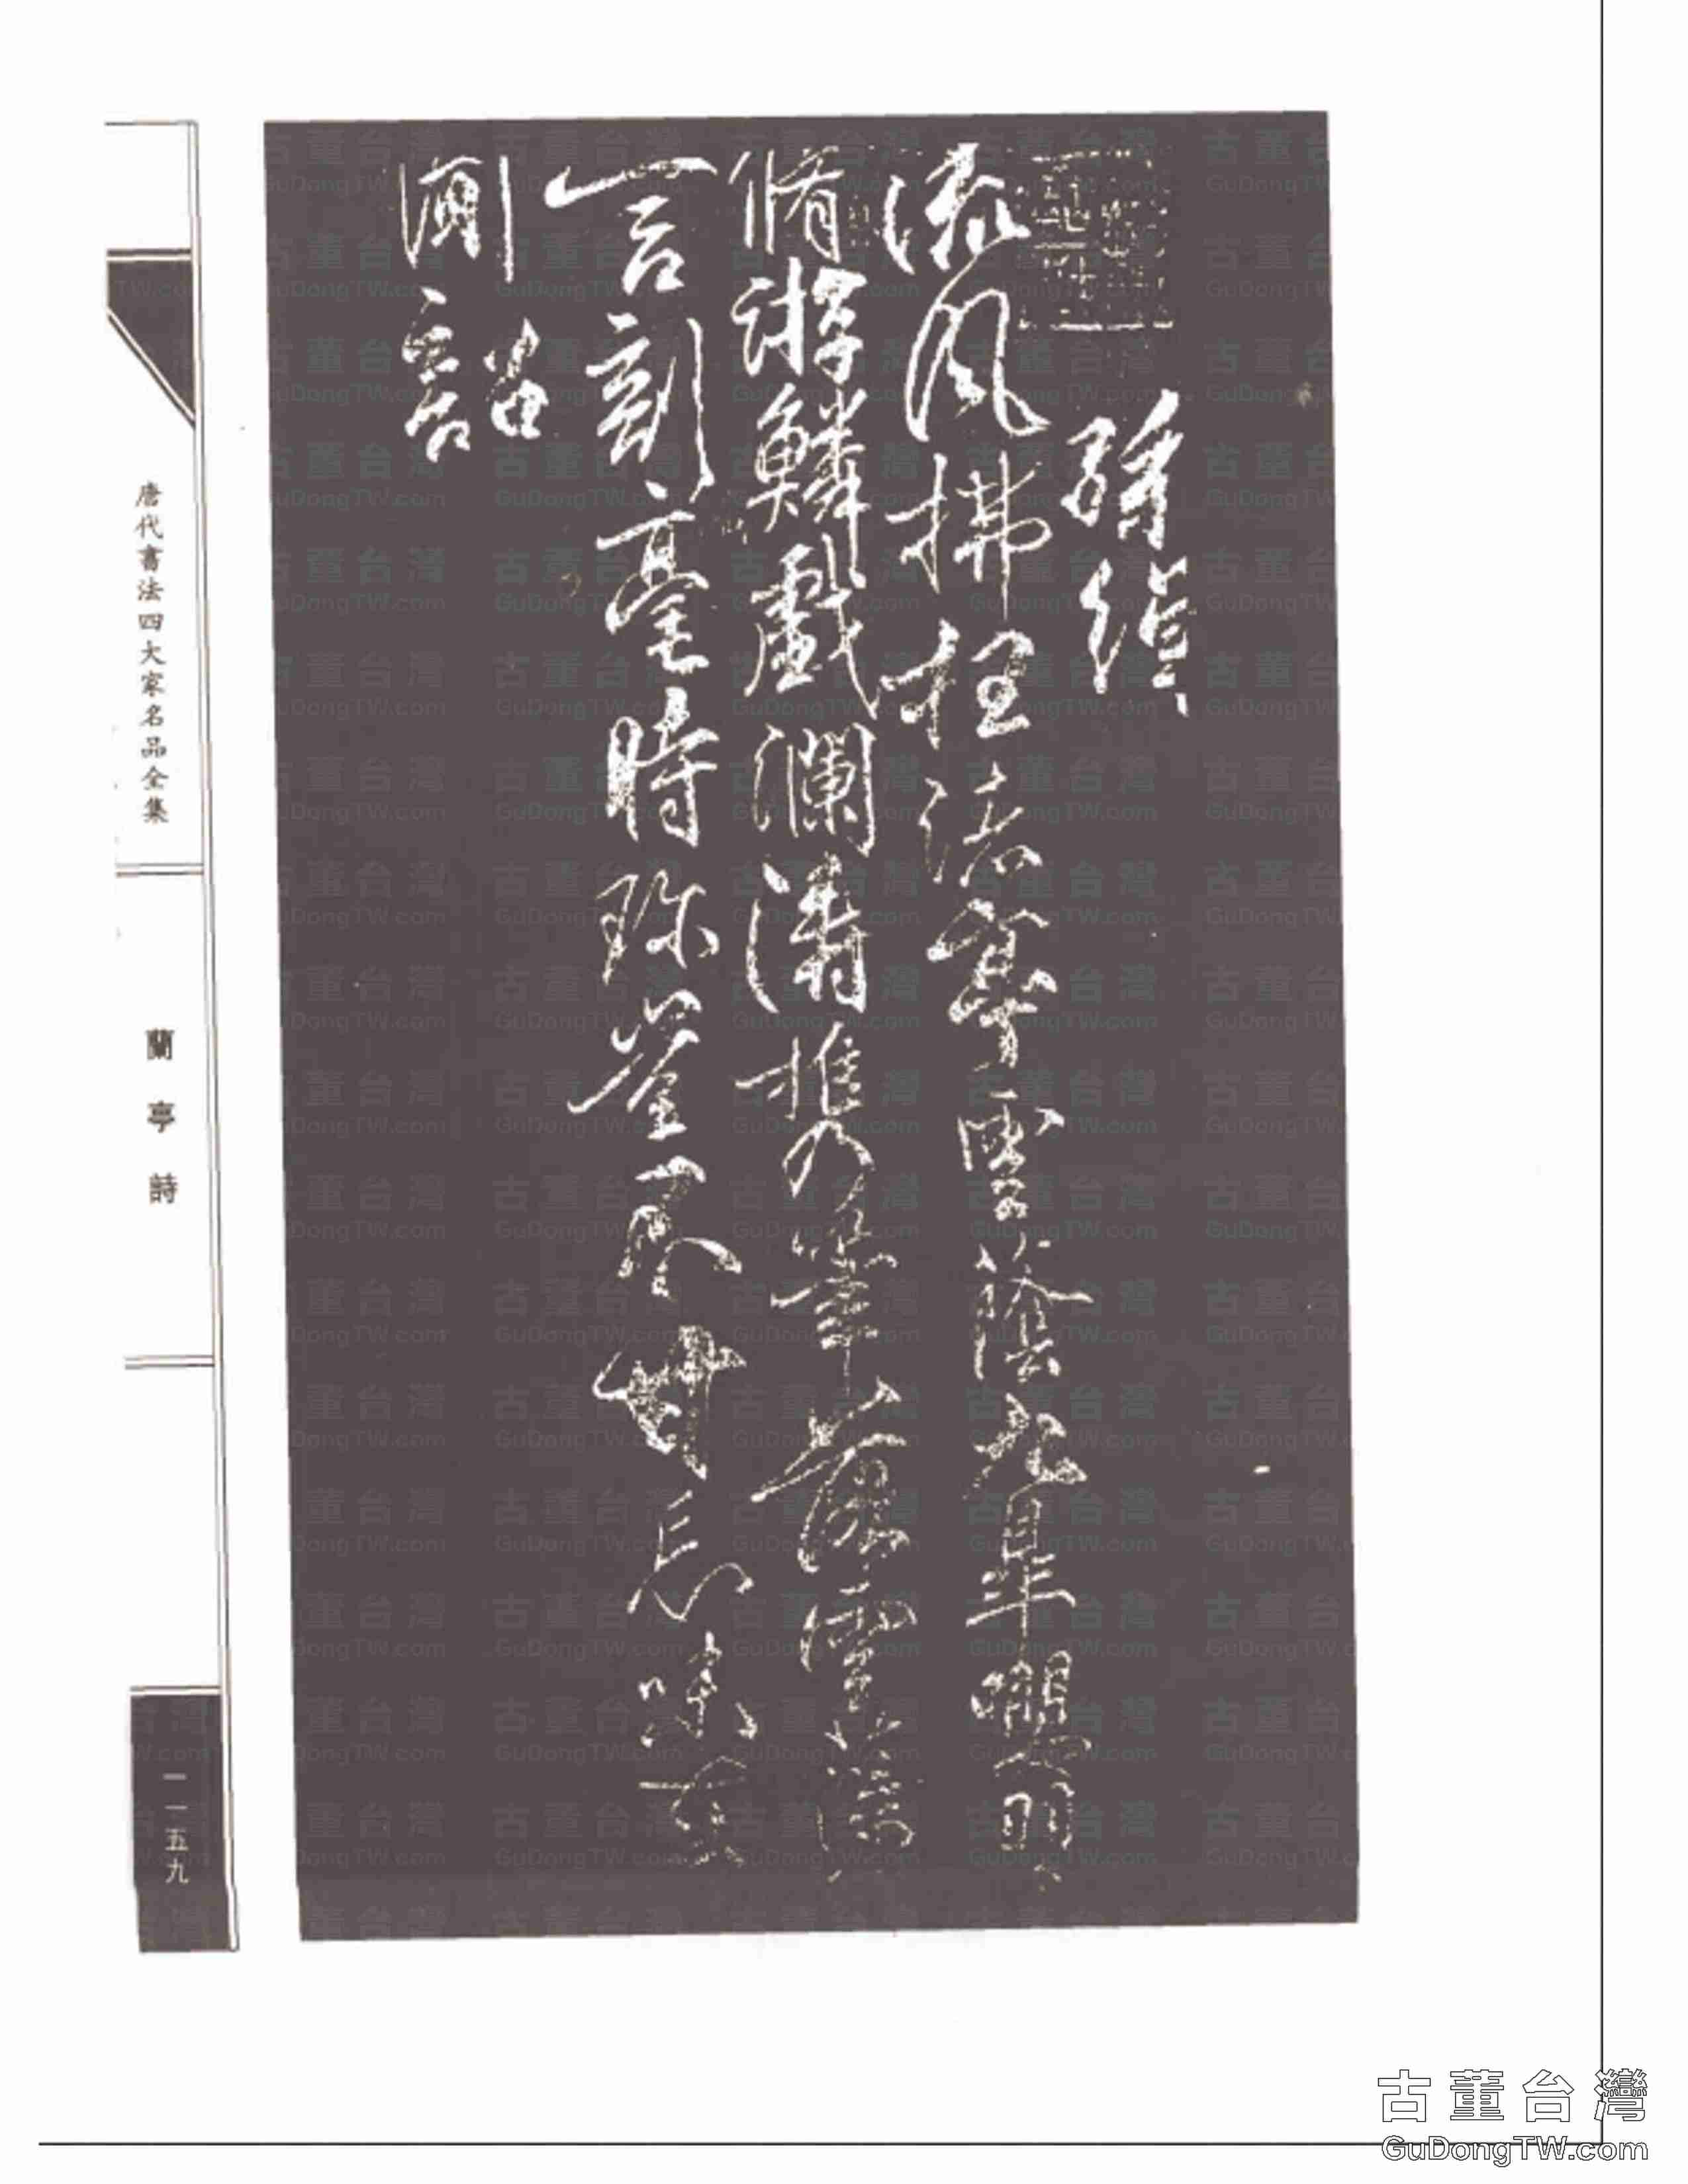 孫綽
流風拂枉渚亭雲蔭九皋嚶羽
脩游鱗戲瀾濤攜筆落雲藻
言剖毫時珍豈不甘忘味在
聞韶
唐代書法四大家名品全集
蘭亭詩
一一五九
古董台灣
GuDongTW.com